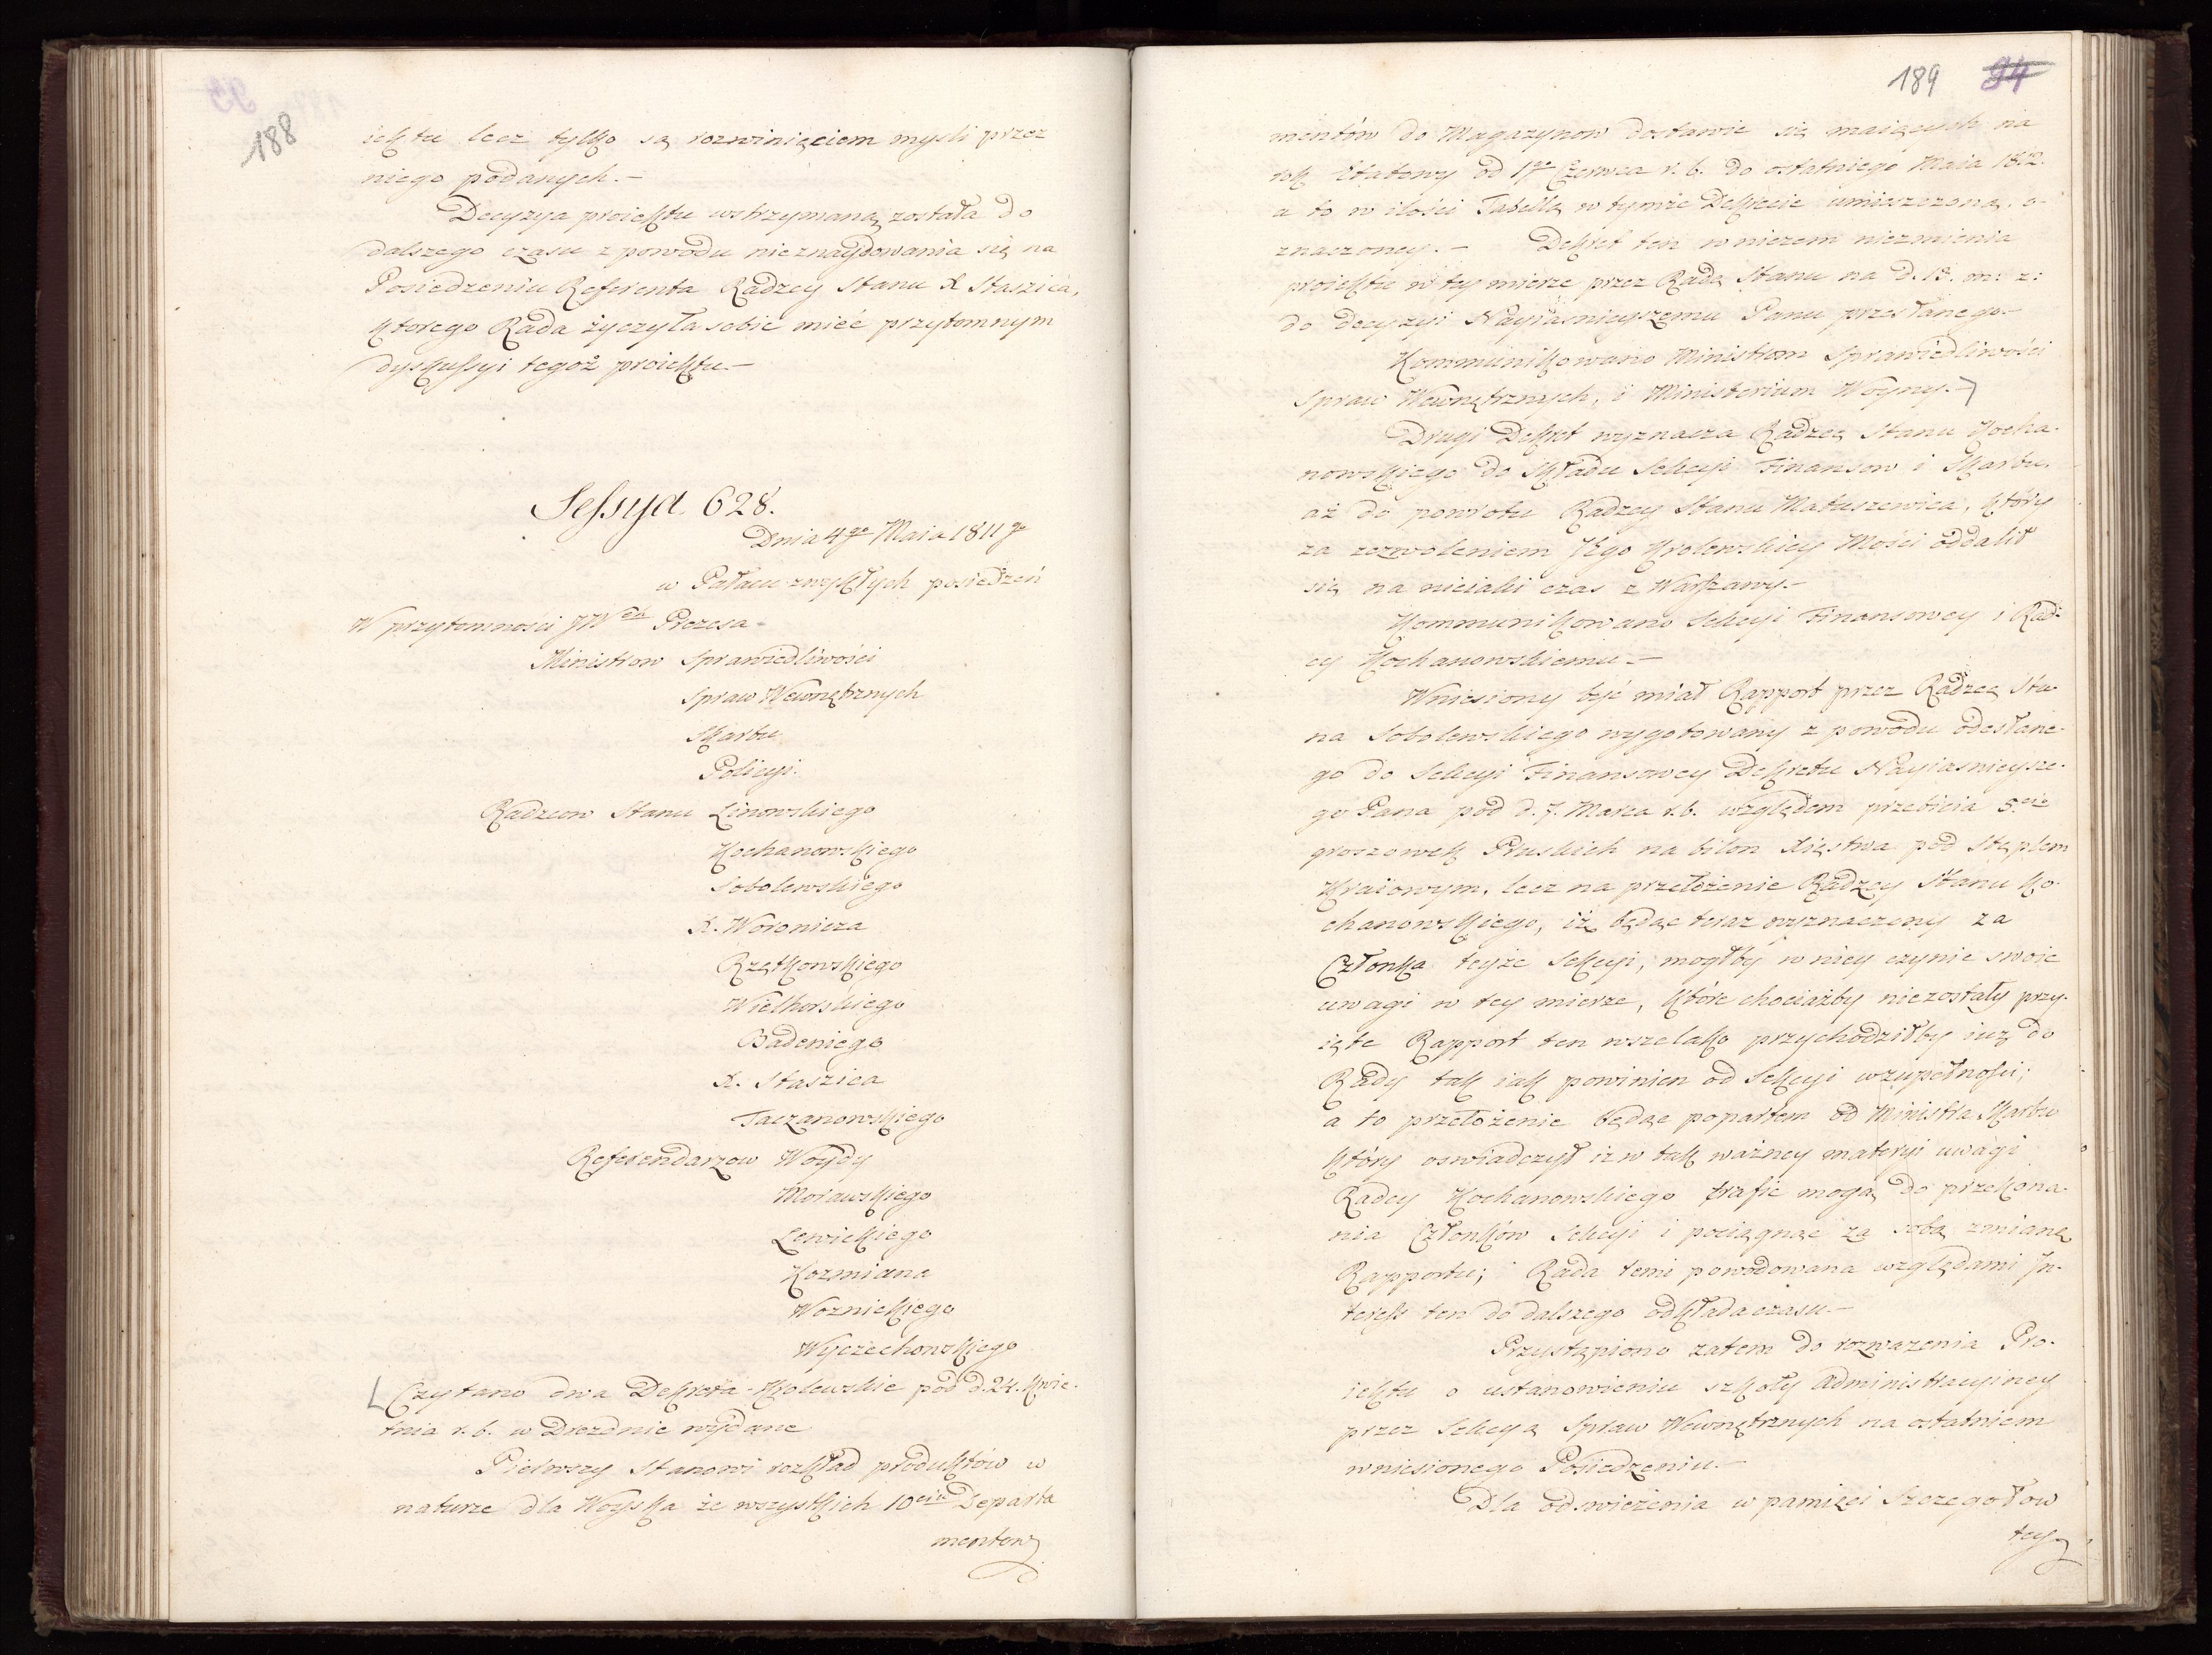 188
iektu lecz tylko są rozwinięciem mysli przez
niego podanych.—
Decyzya proiektu wstrzymaną została do
dalszego czasu z powodu nieznaydowania się na
Posiedzeniu Referenta Radzcy Stanu X Staszica,
ktorego Rada życzyła sobie mieć przytomnym
dyskussyi tegoż proiektu.—
Sessya 628.
Dnia 4go Maia 1811 go
w Pałacu zwykłych posiedzeń
W przytomności JWch Prezesa
Ministrow Sprawiedliwości
Spraw Wewnętrznych
Skarbu
Policyi.
Radzcow Stanu Linowskiego
Kochanowskiego
Sobolewskiego
X. Woronicza
Rzętkowskiego
Wielhorskiego
Badeniego
X. Staszica
Taczanowskiego
Referendarzow Woydy
Morawskiego
Lewickiego
Kozmiana
Woznickiego
Wyczechowskiego
Czytano dwa Dekreta Krolewskie pod d. 24. Kwie-
tnia r. b. w Dreznie wydane
Pierwszy stanowi rozkład produktów w
naturze dla Woyska ze wszystkich 10ciu Departa
mentow
189 94
mentów do Magazynow dostawić się maiących na
rok Etatowy od 1go Czerwca r. b. do ostatniego Maia 1812.
a to w ilości Tabellą w tymże Dekrecie umieszczoną, o-
znaczoney.— Dekret ten w niczem niezmienia
proiektu w tey mierze przez Radę Stanu na d. 13. m: z:
do decyzyi Nayiasnieyszemu Panu przesłanego.—
Kommunikowano Ministrom Sprawiedliwości
Spraw Wewnętrznych, i Ministerium Woyny.—
Drugi Dekret wyznacza Radzcę Stanu Kocha-
nowskiego do składu Sekcyi Finansow i Skarbu,
aż do powrotu Radzcy Stanu Matuszewica, który
za zezwoleniem JEgo Krolewskiey Mości oddalił
się na nieiaki czas z Warszawy.—
Kommunikowano Sekcyi Finansowey i Radz-
cy Kochanowskiemu.—
Wniesiony być miał Rapport przez Radzcę Sta-
na Sobolewskiego wygotowany z powodu odesłane-
go do Sekcyi Finansowey Dekretu Nayiasnieysze-
go Pana pod d. 7. Marca r. b. względem przebicia 5cio
groszowek Pruskich na bilon Xięstwa pod stęplem
Kraiowym, lecz na przełożenie Radzcy Stanu Ko-
chanowskiego, iż będąc teraz wyznaczony za
Członka teyże Sekcyi, mogłby w niey czynić swoie
uwagi w tey mierze, które chociażby niezostały przy-
ięte Rapport ten wszelako przychodziłby iuż do
Rady tak iak powinien od Sekcyi wzupełności;
a to przełożenie będąc popartem od Ministra Skarbu
który oswiadczył iż w tak ważney materyi uwagi
Radcy Kochanowskiego trafić mogą do przekona-
nia Członków Sekcyi i pociągnąć za sobą zmianę
Rapportu; Rada temi powodowana względami In-
teress ten do dalszego odkłada czasu.—
Przystąpiono zatem do rozważenia Pro-
iektu o ustanowieniu szkoły Administracyiney
przez Sekcyą Spraw Wewnętrznych na ostatniem
wniesionego Posiedzeniu.—
Dla odswieżenia w pamięci szczegołow
tey